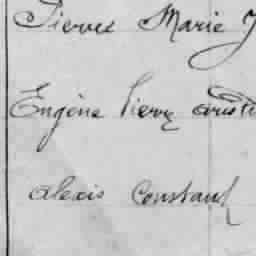 Pierre Marie J
Eugène Pierre Aristi
Alexis Constant